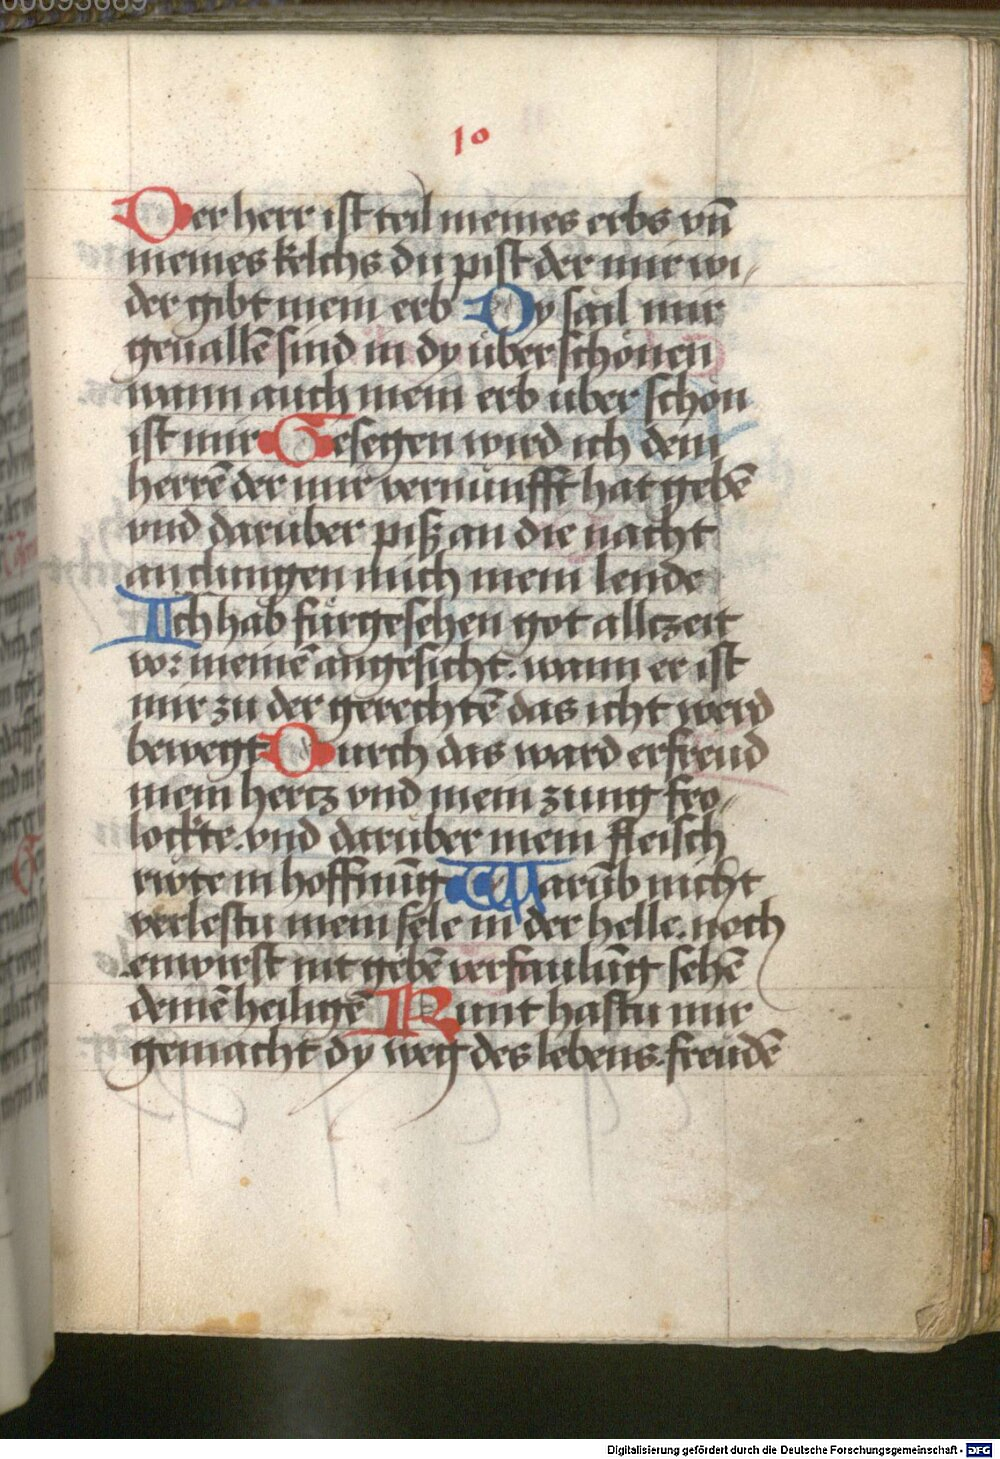 00095669
10
Der herr ist teil meines erbs vn̄
meines kelchs du pist der mir wi,
der gibt mein erb Dy sail mir
geuallē sind in dy über schönen
wann auch mein erb über schön
ist mir Gesegen wird ich dem
herrē der mir vernünfft hat gebē
vnd darüber piß an die nacht
anclungen mich mein lende
Ich hab fürgesehen got allczeit
vor meinē angesicht. wann er ist
mir zu der gerechtē das icht werd
bewegt Durch das ward erfreud
mein hertz vnd mein zung fro,
lockte. vnd darüber mein fleisch
rwöte in hoffnūg Warūb nicht
verlestu mein sele in der helle. noch
enwirst nit gebē verfaulūg sehē
deinē heiligē Kunt hastu mir
gemacht dy weg des lebens. freudē
Digitalisierung gefördert durch die Deutsche Forschungsgemeinschaft - DFG